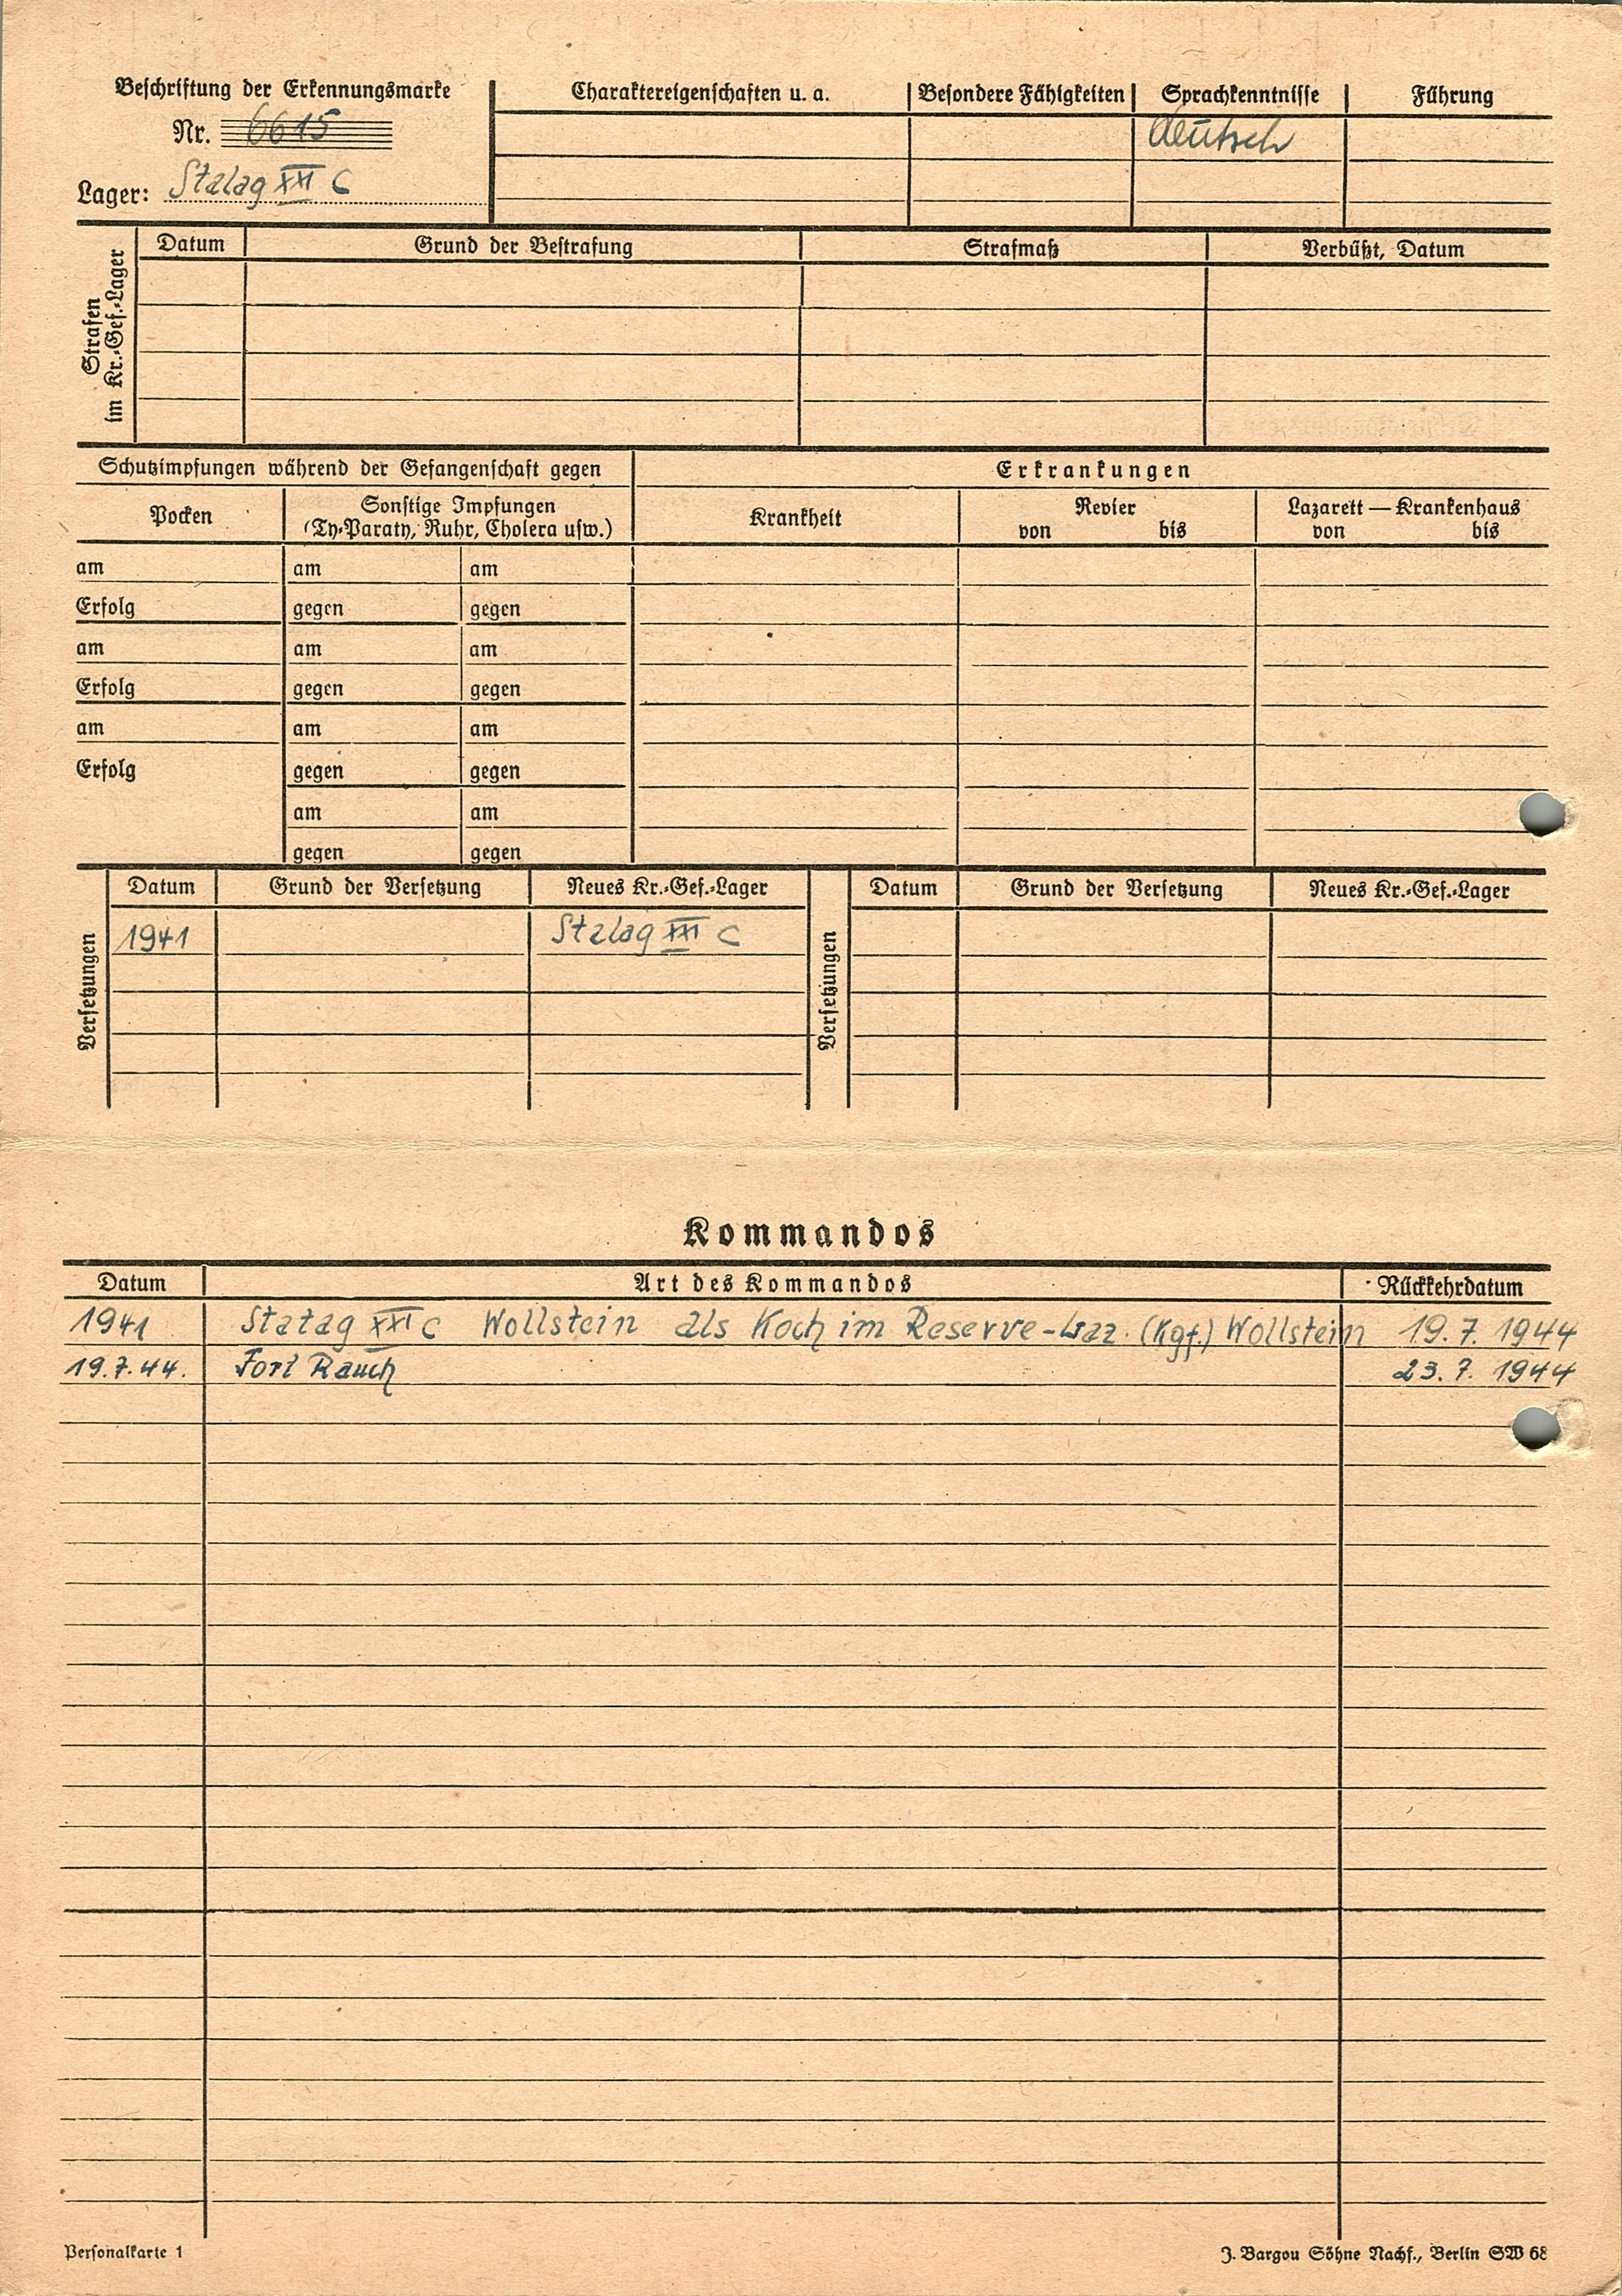 Beschriftung der Erkennungsmarke
Nr. 6615
Lager: Stalag XXI C
Charaktereigenschaften u. a.
Besondere Fähigkeiten
Sprachkenntnisse
Führung
deutsch
Strafen
im Kr.-Gef.-Lager
Datum
Grund der Bestrafung
Strafmaß
Verbüßt, Datum
Schutzimpfungen während der Gefangenschaft gegen
Erkrankungen
Pocken
Sonstige Impfungen
(Ty-Paraty, Ruhr, Cholera usw.)
Krankheit
Revier
von bis
Lazarett — Krankenhaus
von bis
am am am
Erfolg gegen gegen
am am am
Erfolg gegen gegen
am am am
Erfolg gegen gegen
am am
gegen gegen
Versetzungen
Datum Grund der Versetzung Neues Kr.-Gef.-Lager
1941 Stalag XXI C
Versetzungen
Datum Grund der Versetzung Neues Kr.-Gef.-Lager
Kommandos
Datum Art des Kommandos Rückkehrdatum
1941 Stalag XXI C Wollstein als Koch im Reserve-Laz. (Kgf.) Wollstein 19.7.1944
19.7.44. Fort Rauch 23.7.1944
Personalkarte 1
J. Bargou Söhne Nachf., Berlin SW 68